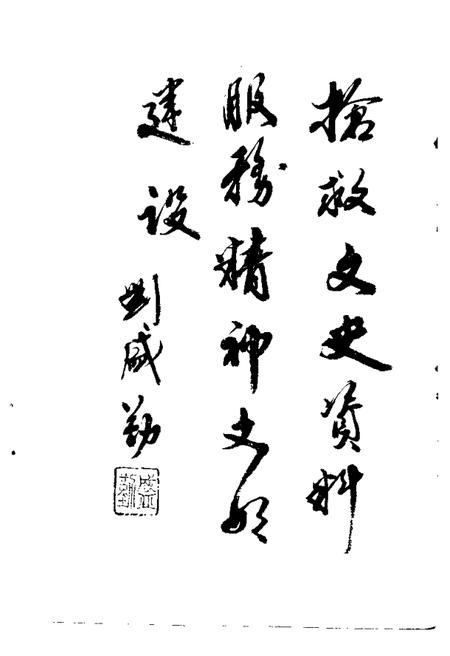 搶救文史資料
服務精神文明
建设
劉盛勤